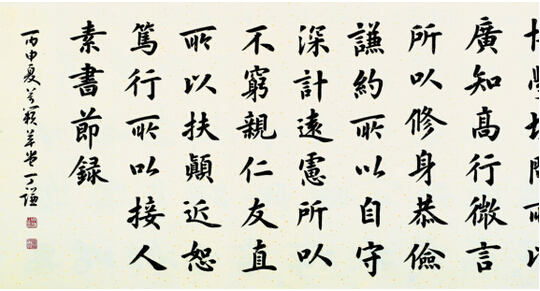 博學切問所以
廣知高行微言
所以修身恭儉
謙約所以自守
深計遠慮所以
不窮親仁友直
所以扶顛近恕
篤行所以接人
素書節録
丙申夏草堂丁谦